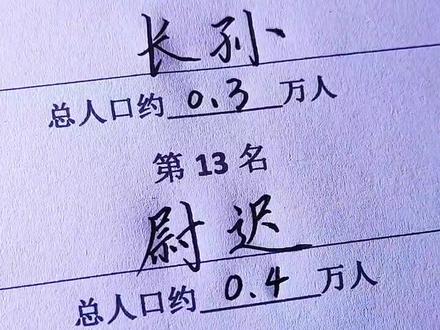 长孙
总人口约 0.3 万人
第 13 名
尉迟
总人口约 0.4 万人